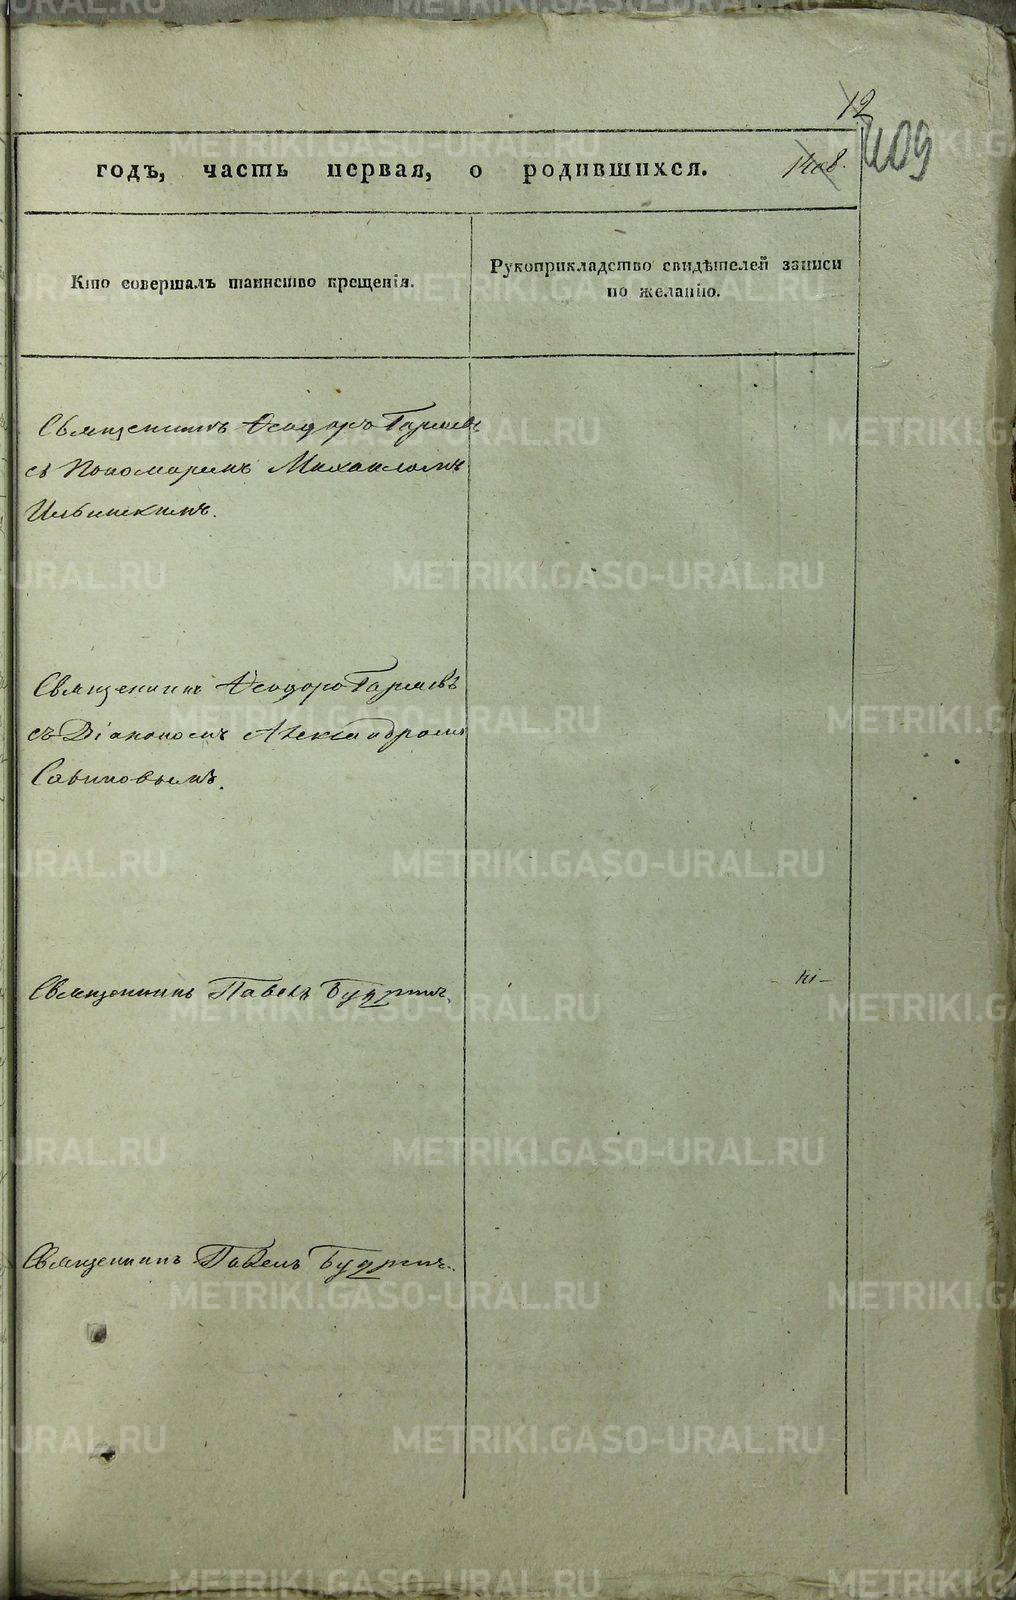 12
1408.
409
годъ, часть первая, о родившихся.
Кто совершалъ таинство крещенія.
Рукоприкладство свидѣтелей записи
по желанію.
Священникъ Ѳеодоръ
съ Пономаремъ Михаиломъ
Ильинскимъ.
Священникъ Ѳеодоръ
съ Діакономъ Александромъ
Савиновымъ.
Священникъ Павелъ Будринъ.
Священникъ Павелъ Будринъ.
METRIKI.GASO-URAL.RU